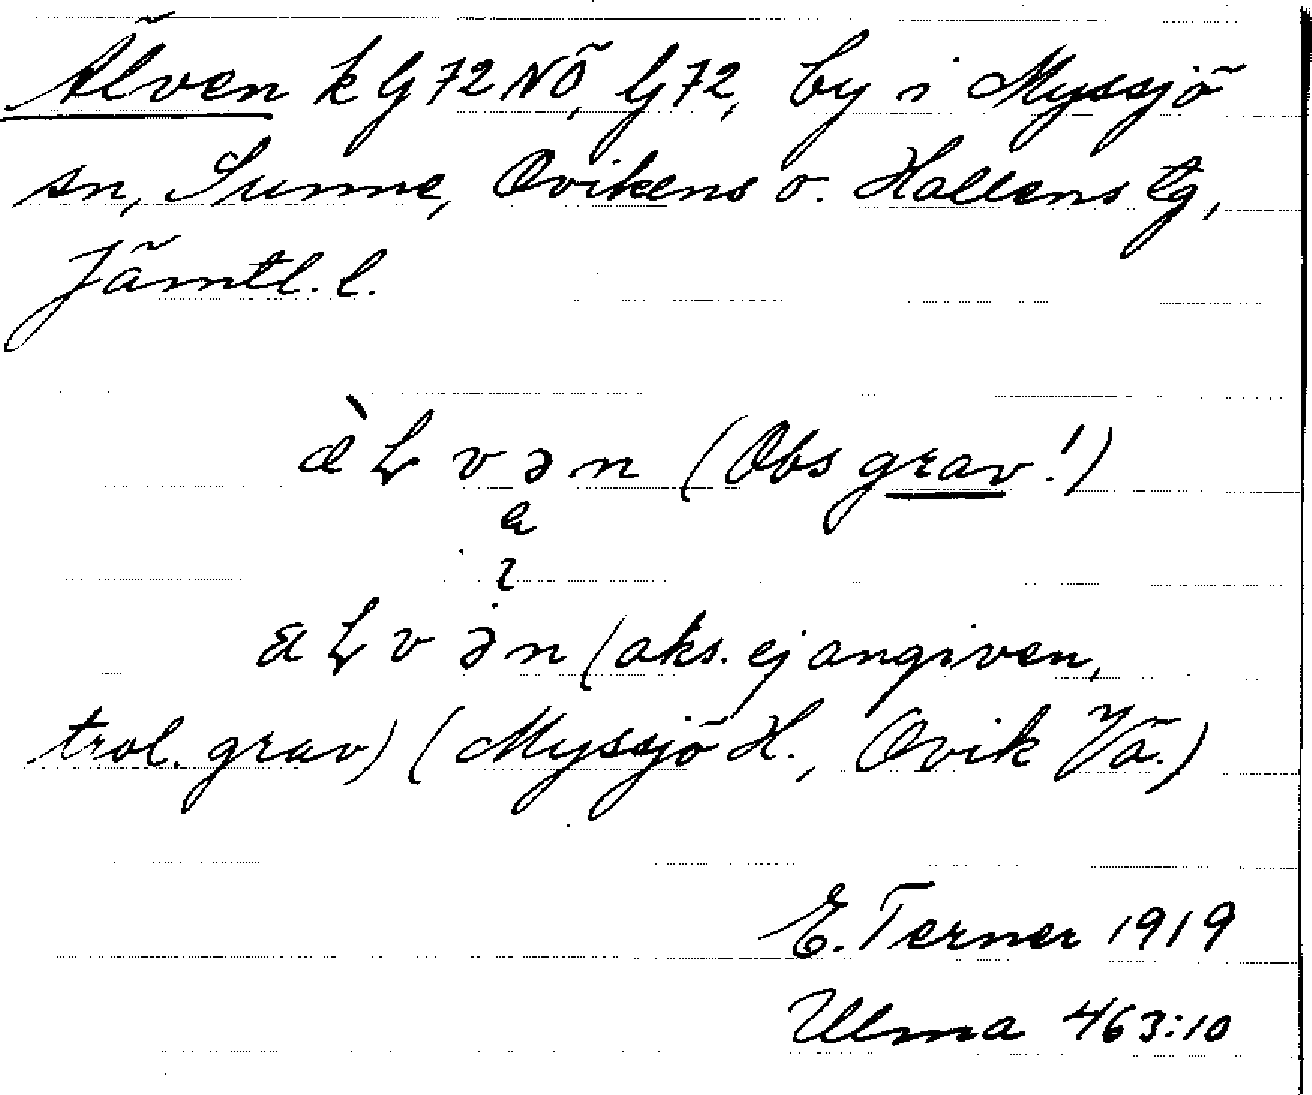 Älven k G 72 NÖ, G 72, by i Myssjö
sn, Sunne, Ovikens o. Hallens tg,
Jämtl. l.
æ̀ L v ə n (Obs grav!)
a
ı
a L v ə n (aks. ej angiven,
trol. grav) (Myssjö H., Ovik Vä.)
E. Terner 1919
Ulma 463:10